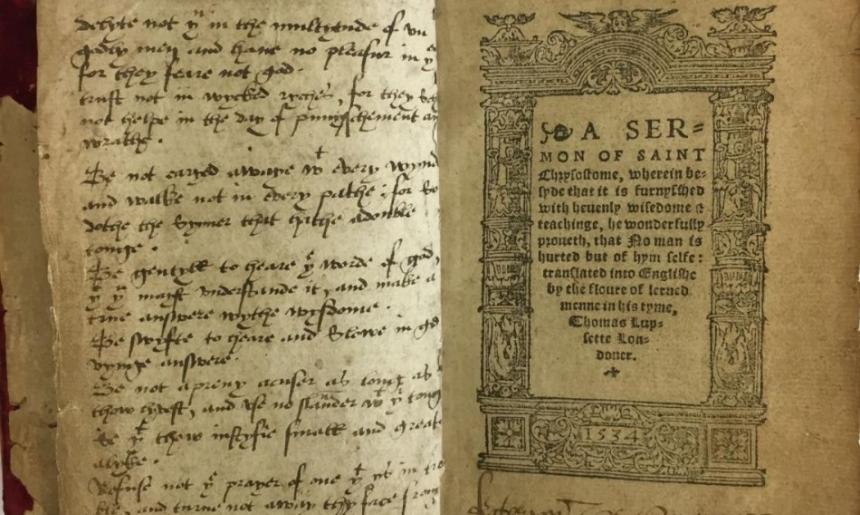 delyte not yn in the multytude of vn
godly men and haue no pleasur in y
for they feare not god.
trust not in wycked ryches, for they
not helpe in the day of punysshement
wrathe.
Be not caryed awaye wt every wynd
and walke not in every pathe; for so
dothe the synner that hathe a double
tonge.
Be gentyll to heare ye worde of god,
yt yu mayst vnderstande it, and make a
true answere wythe wysdome.
Be swyfte to heare and slowe in ge
vynge answere.
Be not a preuy acuser as long as
thow lyvest, and vse no slaunder wt yi tong
Se yt thow iustyfie small and greate
alyke.
Refuse not ye prayer of one yt is in tro
ble, and turne not away thy face from
A SER=
MON OF SAINT
Chrysostome, wherein be-
syde that it is furnysshed
with heuenly wisedome &
teachinge, he wonderfully
proueth, that No man is
hurted but of hym selfe:
translated into Englishe
by the floure of lerned
menne in his tyme,
Thomas Lup-
sette Lon-
doner.
1534